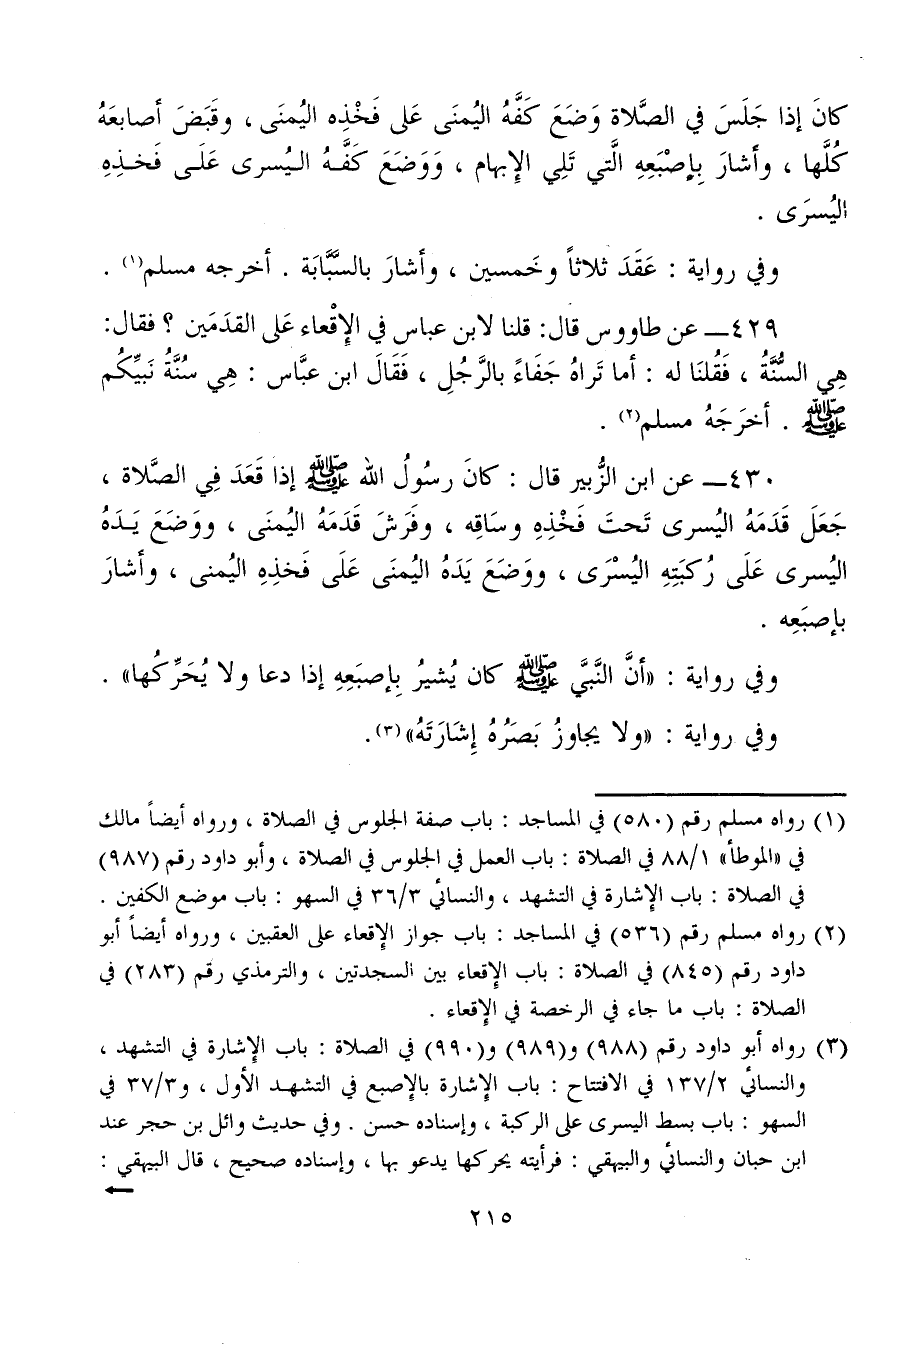 كانَ إذا جَلَسَ في الصَّلاة وَضَعَ كَفَّهُ اليُمنَى عَلى فَخْذِه اليُمنَى ، وقَبَضَ أصابعَهُ
كُلَّها ، وأشارَ بِإصْبَعِهِ الَّتي تَلِي الإبهام ، وَوَضَعَ كَفَّهُ اليُسرى عَلَى فَخذِهِ
اليُسرَى .
وفي رواية : عَقَدَ ثلاثاً وخَمسين ، وأشارَ بالسَّبَّابَة . أخرجه مسلم(١) .
٤٢٩ـ عن طاووس قال: قلنا لابن عباس في الإقْعاء عَلى القدَمَين ؟ فقال:
هِي السُّنَّةُ ، فَقُلنَا له : أما تَراهُ جَفَاءً بالرَّجُلِ ، فَقَالَ ابن عبَّاس : هِي سُنَّةُ نَبِيِّكُم
ﷺ . أخرَجَهُ مسلم(٢) .
٤٣٠ـ عن ابن الزُّبير قال : كانَ رسُولُ الله ﷺ إذا قَعَدَ فِي الصَّلاة ،
جَعَلَ قَدَمَهُ اليُسرى تَحتَ فَخْذِهِ وساقِه ، وفَرَشَ قَدَمَهُ اليُمنَى ، ووَضَعَ يَدَهُ
اليُسرى عَلَى رُكبَتِهِ اليُسْرَى ، ووَضَعَ يَدَهُ اليُمنَى عَلَى فَخذِهِ اليُمنى ، وأشارَ
بإصبَعِه .
وفي رواية : «أنَّ النَّبيَّ ﷺ كان يُشيرُ بِإصبَعِهِ إذا دعا ولا يُحَرِّكُها» .
وفي رواية : «ولا يجاوزُ بَصَرُهُ إشَارَتَهُ»(٣).
(١) رواه مسلم رقم (٥٨٠) في المساجد : باب صفة الجلوس في الصلاة ، ورواه أيضاً مالك
في «الموطأ» ٨٨/١ في الصلاة : باب العمل في الجلوس في الصلاة ، وأبو داود رقم (٩٨٧)
في الصلاة : باب الإشارة في التشهد ، والنسائي ٣٦/٣ في السهو : باب موضع الكفين .
(٢) رواه مسلم رقم (٥٣٦) في المساجد : باب جواز الإقعاء على العقبين ، ورواه أيضاً أبو
داود رقم (٨٤٥) في الصلاة : باب الإقعاء بين السجدتين ، والترمذي رقم (٢٨٣) في
الصلاة : باب ما جاء في الرخصة في الإقعاء .
(٣) رواه أبو داود رقم (٩٨٨) و(٩٨٩) و(٩٩٠) في الصلاة : باب الإشارة في التشهد ،
والنسائي ١٣٧/٢ في الافتتاح : باب الإشارة بالإصبع في التشهد الأول ، و٣٧/٣ في
السهو : باب بسط اليسرى على الركبة ، وإسناده حسن . وفي حديث وائل بن حجر عند
ابن حبان والنسائي والبيهقي : فرأيته يحركها يدعو بها ، وإسناده صحيح ، قال البيهقي :
←
٢١٥